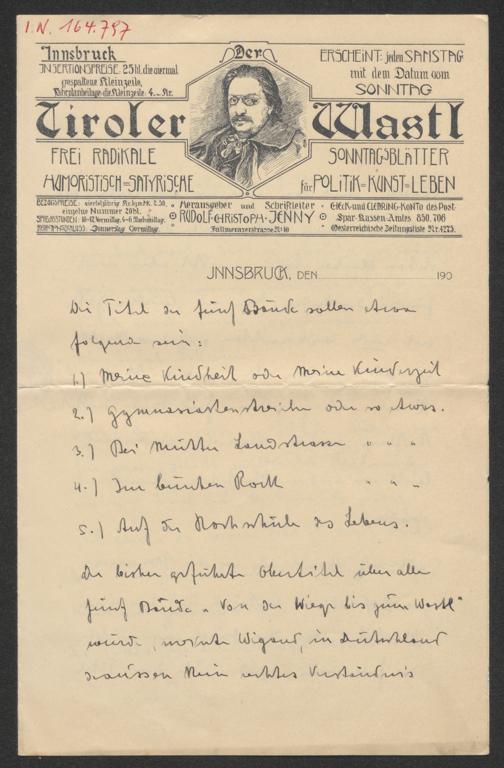 I.N. 164.797
Innsbruck
INSERTIONSPREISE: 25 hl. die viermal
gespaltene Kleinzeile,
Fahrplanbeilage: die Kleinzeile 4.- Kr.
Der
ERSCHEINT: jeden SAMSTAG
mit dem Datum vom
SONNTAG
Tiroler Wastl
FREI RADIKALE
HUMORISTISCH=SATYRISCHE
SONNTAGSBLÄTTER
für POLITIK=KUNST=LEBEN
BEZUGSPREISE: vierteljährig
einzelne Nummer 20 hl.
SPRECHSTUNDEN: 10-12 Vormittag, 4-6 Nachmittag.
Donnerstag Vormittag.
Herausgeber und Schriftleiter
RUDOLF CHRISTOPH JENNY
Fallmerayerstrasse Nr. 10
CHECK und CLEARING-KONTO des Post-
Spar-Kassen-Amtes 850.706
Österreichische Zeitungsliste Nr. 4273.
INNSBRUCK, DEN 190
Die Titel der fünf Bände sollen etwa
folgende sein:
1.) Meine Kindheit oder Meine Kinderzeit
2.) Gymnasiastenstreiche oder so etwas.
3.) Bei Mutter Landstrasse " " "
4.) Im bunten Rock " " "
5.) Auf der Hochschule des Lebens.
Der bisher geführte Obertitel über alle
fünf Bände "Von der Wiege bis zum Wastl"
würde, meinte Wigand, in Deutschland
draussen kein rechtes Verständnis